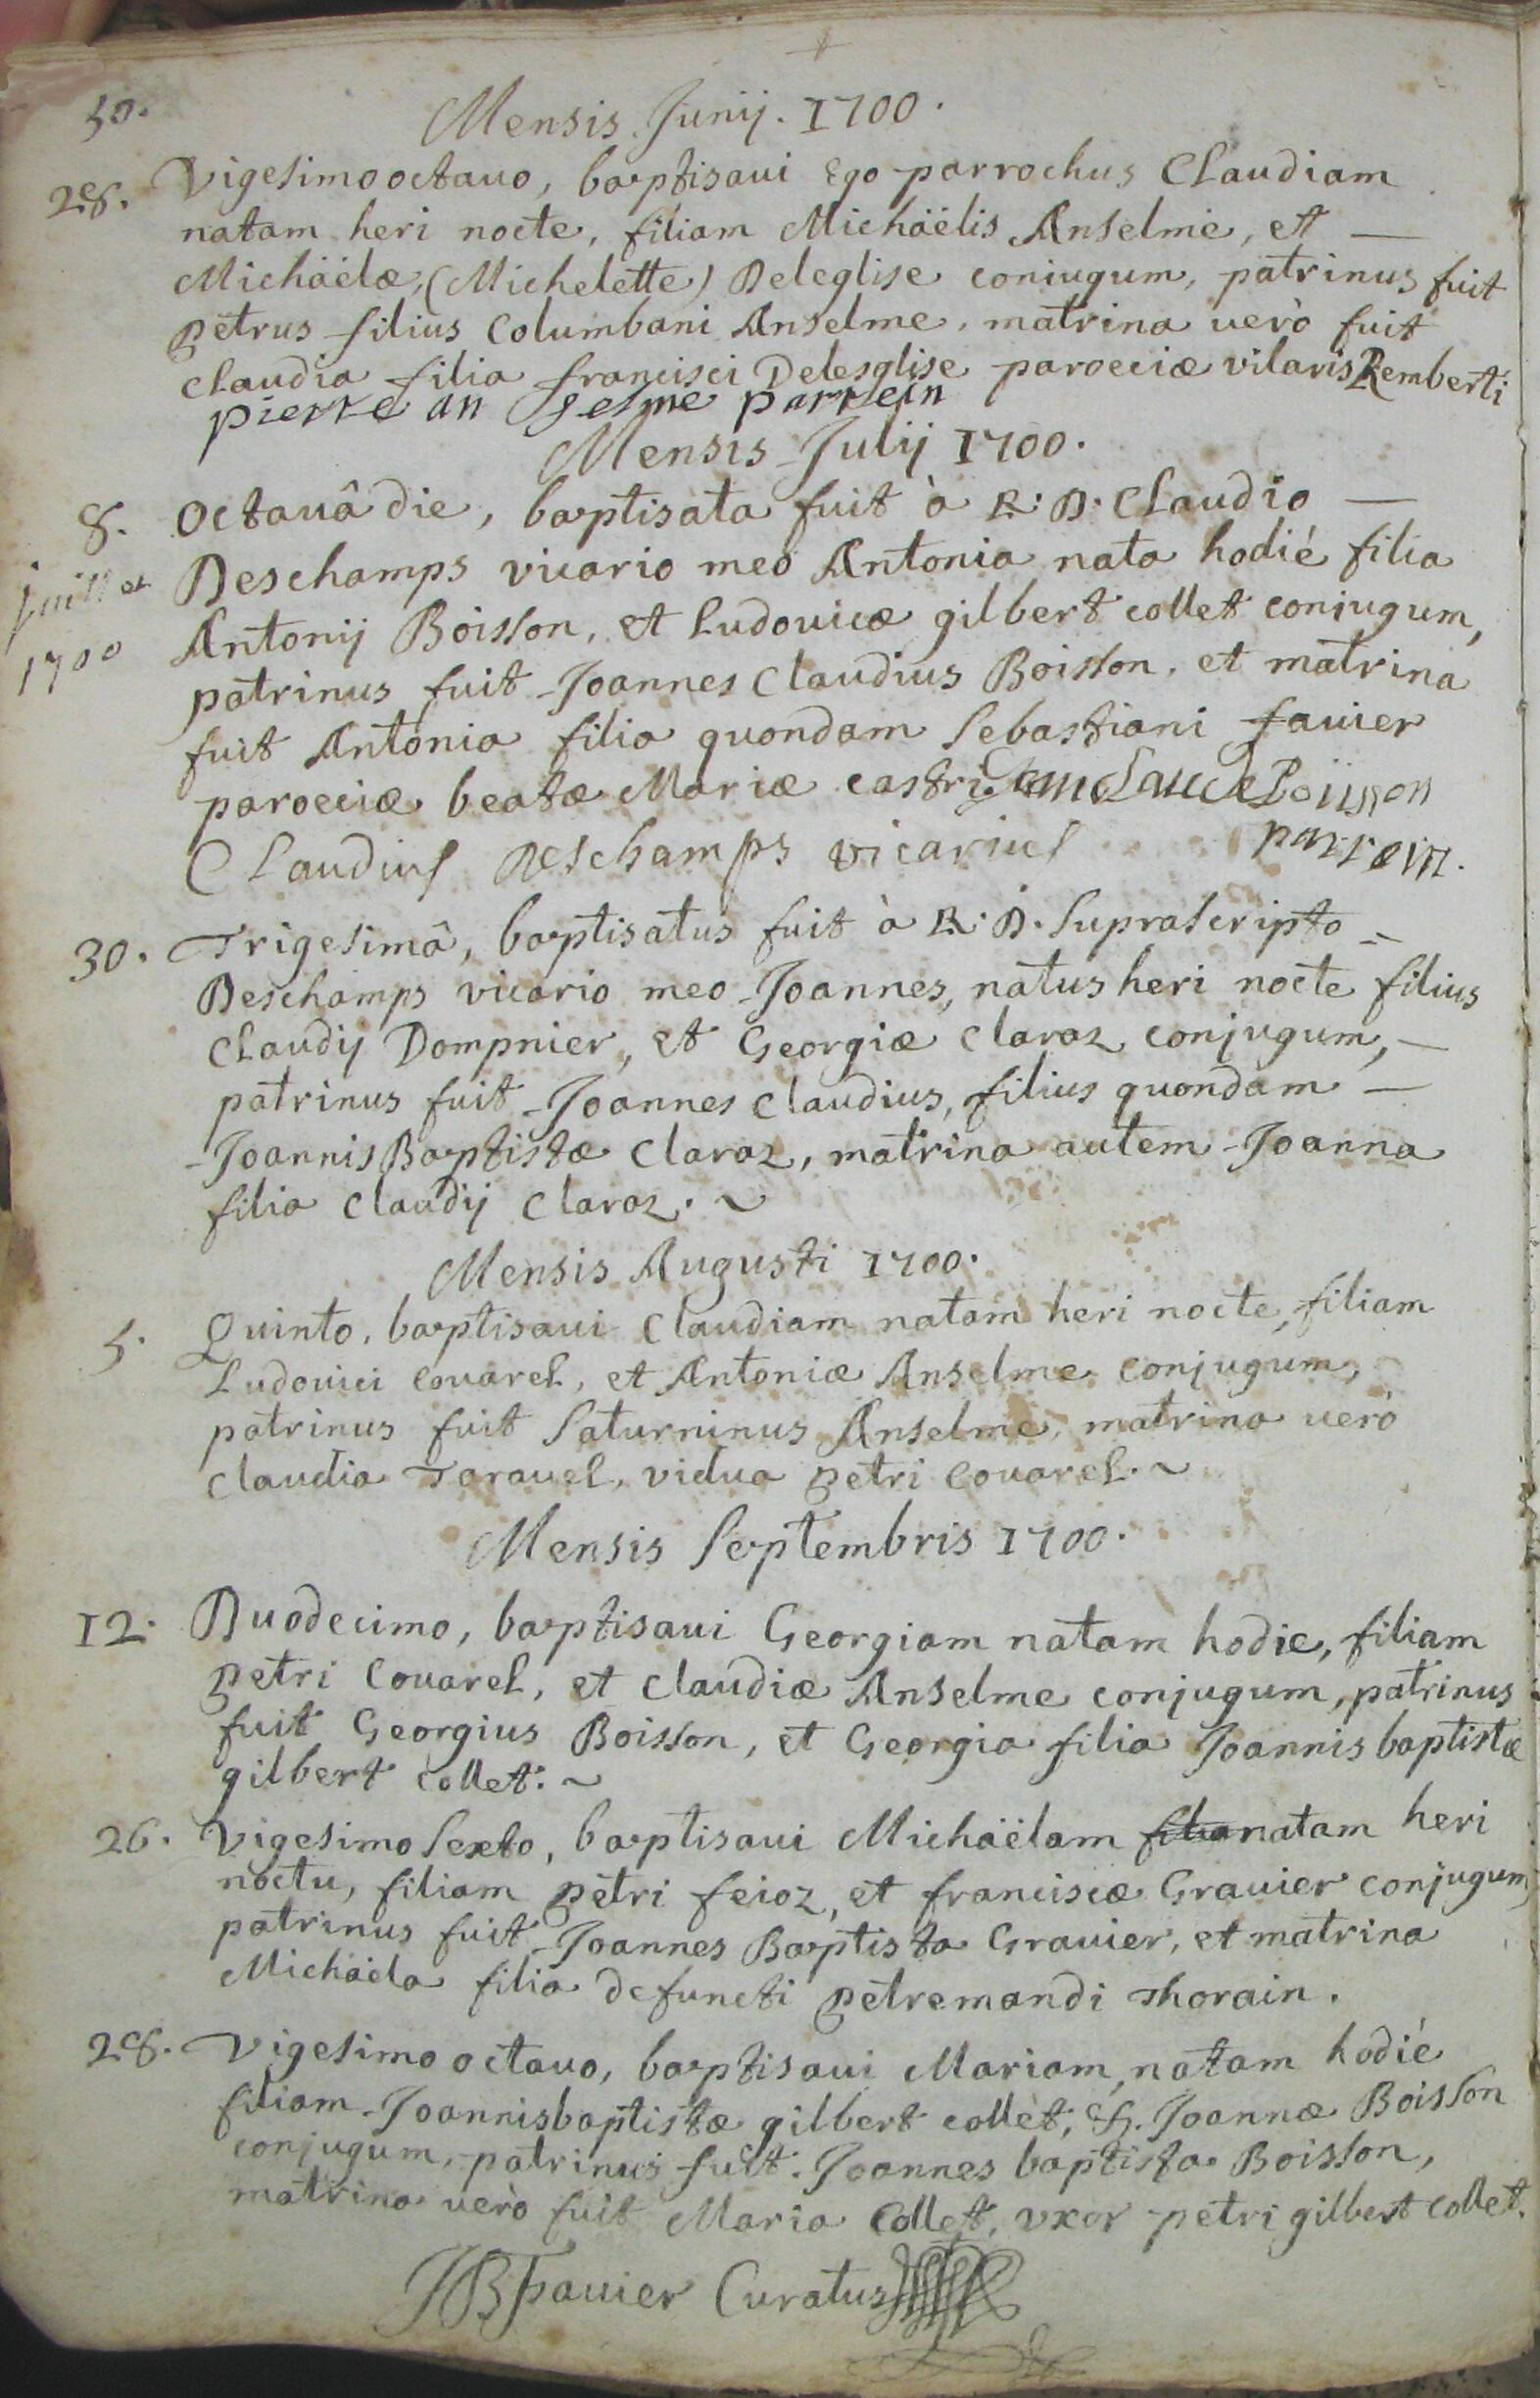 50.
Mensis Junij. 1700.
28. Vigesimo octavo, baptisaui Ego parrochus Claudiam
natam heri nocte, filiam Michäëlis Anselme, et —
Michäëlæ, (Michelette) Deleglise coniugum, patrinus fuit
petrus filius Columbani Anselme, matrina uerò fuit
claudia filia francisci Delesglise paroeciæ vilaris Remberti
pierre an selme parrein
Mensis Julij 1700.
8. Octauâ die, baptisata fuit à R: D: Claudio —
Juillet 1700
Deschamps vicario meo Antonia nata hodié filia
Antonij Boisson, et Ludouicæ gilbert collet conjugum,
patrinus fuit Joannes Claudius Boisson, et matrina
fuit Antonia filia quondam Sebastiani fauier
paroeciæ beatæ Mariæ castri. Jean Claude Boïisson
Claudius Deschamps vicarius parrein.
30. Trigesimâ, baptisatus fuit à R: D. Suprascripto =
Deschamps vicario meo Joannes, natus heri nocte filius
Claudij Dompnier, et Georgiæ Claraz conjugum, —
patrinus fuit Joannes Claudius, filius quondam —
Joannis Baptistæ Claraz, matrina autem Joanna
filia Claudij Claraz. ~
Mensis Augusti 1700.
5. Quinto, baptisaui Claudiam natam heri nocte, filiam
Ludouici Couarel, et Antoniæ Anselme conjugum,
patrinus fuit Saturninus Anselme, matrina uerò
Claudia Tarauel, vidua petri Couarel. ~
Mensis Septembris 1700.
12. Duodecimo, baptisaui Georgiam natam hodie, filiam
petri Couarel, et Claudiæ Anselme conjugum, patrinus
fuit Georgius Boisson, et Georgia filia Joannis baptistæ
gilbert collet. ~
26. Vigesimo Sexto, baptisaui Michäëlam filia natam heri
noctu, filiam petri feioz, et franciscæ Grauier conjugum,
patrinus fuit Joannes Baptista Grauier, et matrina
Michäëla filia defuncti petremandi Thorain.
28. Vigesimo octauo, baptisaui Mariam, natam hodié
filiam Joannisbaptistæ gilbert collet, & Joannæ Boisson
conjugum, patrinus fuit Joannes baptista Boisson,
matrina uerò fuit Maria Collet, vxor petri gilbert collet.
JB favier Curatus